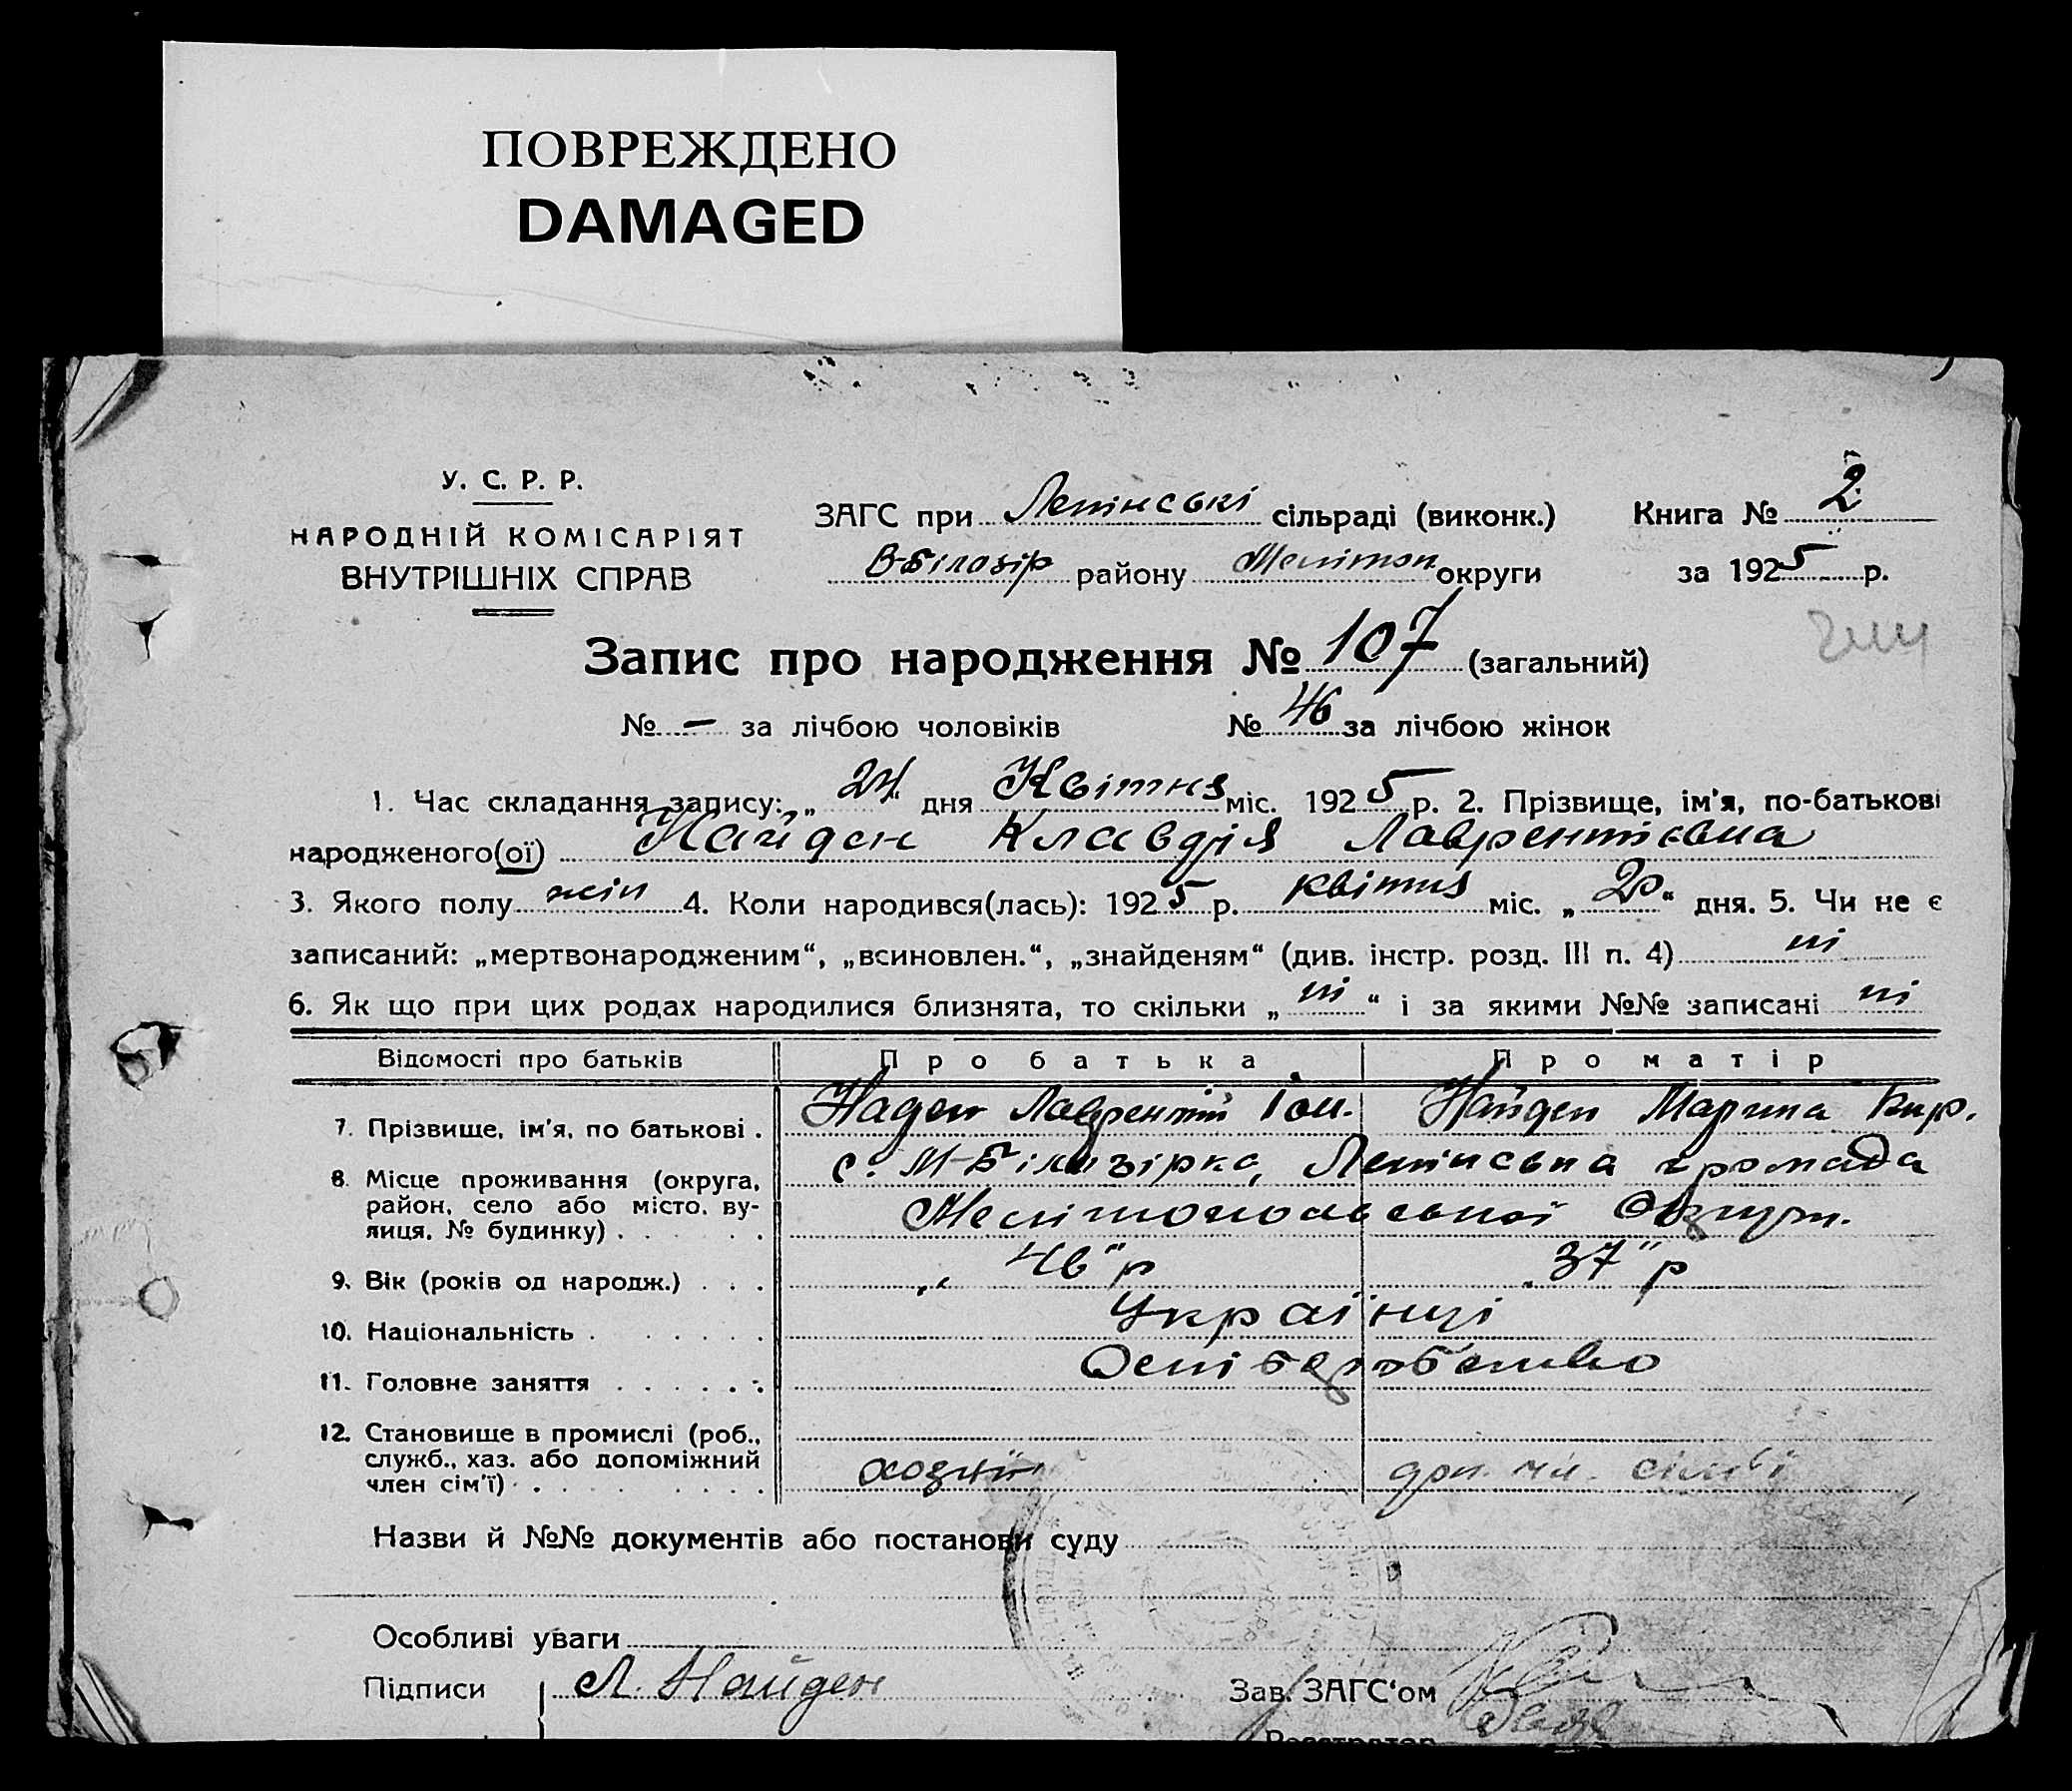 ПОВРЕЖДЕНО
DAMAGED
У. С. Р. Р.
НАРОДНІЙ КОМІСАРІЯТ
ВНУТРІШНІХ СПРАВ
ЗАГС при Ленінські сільраді (виконк.)
В-Білозір району Мелітоп округи
Книга № 2
за 1925 р.
Запис про народження № 107 (загальний)
№ – за лічбою чоловіків № 46 за лічбою жінок
1. Час складання запису: „24“ дня Квітня міс. 1925 р. 2. Прізвище, ім'я, по-батькові
народженого(ої) Найден Клавдія Лаврентієвна
3. Якого полу жін 4. Коли народився(лась): 1925 р. квітня міс. „20“ дня. 5. Чи не є
записаний: „мертвонародженим“, „всиновлен.“, „знайденям“ (див. інстр. розд. III п. 4) ні
6. Як що при цих родах народилися близнята, то скільки „ні“ і за якими №№ записані ні
Відомості про батьків Про батька Про матір
7. Прізвище, ім'я, по батькові . Наден Лаврентій Найден Марина Кир.
8. Місце проживання (округа, район, село або місто, ву-
лиця, № будинку) . с. М-Білозірка, Ленінська громада
Мелітопольської Округи.
9. Вік (років од народж.) . . . „46" р „37" р
10. Національність . Українці
11. Головне заняття . Хліборобство
12. Становище в промислі (роб.,
служб., хаз. або допоміжний
член сім'ї) . хозяїн доп. чл. сім'ї
Назви й №№ документів або постанови суду
Особливі уваги
Підписи Л. Найден
Зав. ЗАГС'ом
Реєстратор